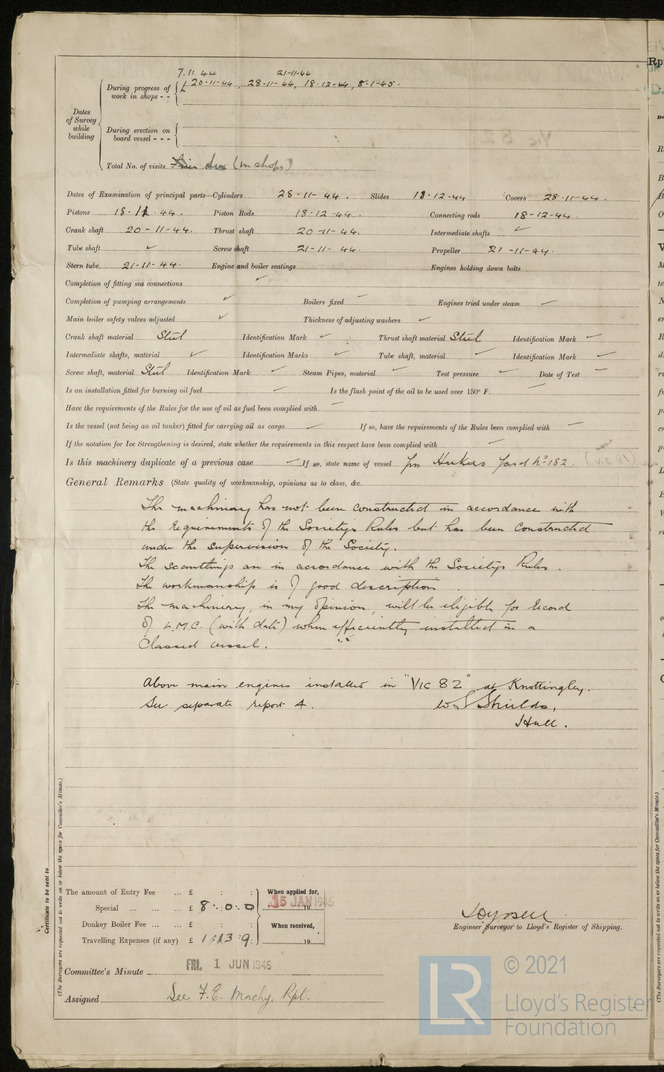 7.11.44 21-11-44
During progress of work in shops - - 20-11-44, 28-11-44, 18-12-44, 8-1-45.
Dates of Survey while building
During erection on board vessel - - -
Total No. of visits Six (in shops)
Dates of Examination of principal parts—Cylinders 28-11-44. Slides 18-12-44 Covers 28-11-44.
Pistons 18-11-44. Piston Rods 18-12-44. Connecting rods 18-12-44.
Crank shaft 20-11-44. Thrust shaft 20-11-44. Intermediate shafts ✓
Tube shaft ✓ Screw shaft 21-11-44. Propeller 21-11-44.
Stern tube 21-11-44. Engine and boiler seatings Engines holding down bolts
Completion of fitting sea connections ✓
Completion of pumping arrangements ✓ Boilers fixed — Engines tried under steam —
Main boiler safety valves adjusted ✓ Thickness of adjusting washers ✓
Crank shaft material Steel Identification Mark ✓ Thrust shaft material Steel Identification Mark ✓
Intermediate shafts, material ✓ Identification Marks ✓ Tube shaft, material ✓ Identification Mark ✓
Screw shaft, material Steel Identification Mark ✓ Steam Pipes, material ✓ Test pressure ✓ Date of Test ✓
Is an installation fitted for burning oil fuel — Is the flash point of the oil to be used over 150° F. —
Have the requirements of the Rules for the use of oil as fuel been complied with —
Is the vessel (not being an oil tanker) fitted for carrying oil as cargo — If so, have the requirements of the Rules been complied with —
If the notation for Ice Strengthening is desired, state whether the requirements in this respect have been complied with —
Is this machinery duplicate of a previous case — If so, state name of vessel Yard No 182.
General Remarks (State quality of workmanship, opinions as to class, &c.
The machinery has not been constructed in accordance with
the requirements of the Society's Rules but has been constructed
under the supervision of the Society.
The scantlings are in accordance with the Society's Rules.
The workmanship is of good description
The machinery, in my opinion, will be eligible for record
of L.M.C. (with date) when efficiently installed in a
Classed vessel.
Above main engines installed in "VIC 82" at Knottingley.
See separate report 4. Shields,
Hull.
Certificate to be sent to
(The Surveyors are requested not to write on or below the space for Committee's Minute.)
The amount of Entry Fee ... £ : : When applied for,
Special ... ... £ 8 : 0 : 0 15 JAN 1945
Donkey Boiler Fee ... ... £ : : When received,
Travelling Expenses (if any) £ 1 : 13 : 9. 19
Engineer Surveyor to Lloyd's Register of Shipping.
Committee's Minute FRI. 1 JUN 1945
Assigned See F.E. Machy. Rpt.
LR © 2021
Lloyd's Register
Foundation